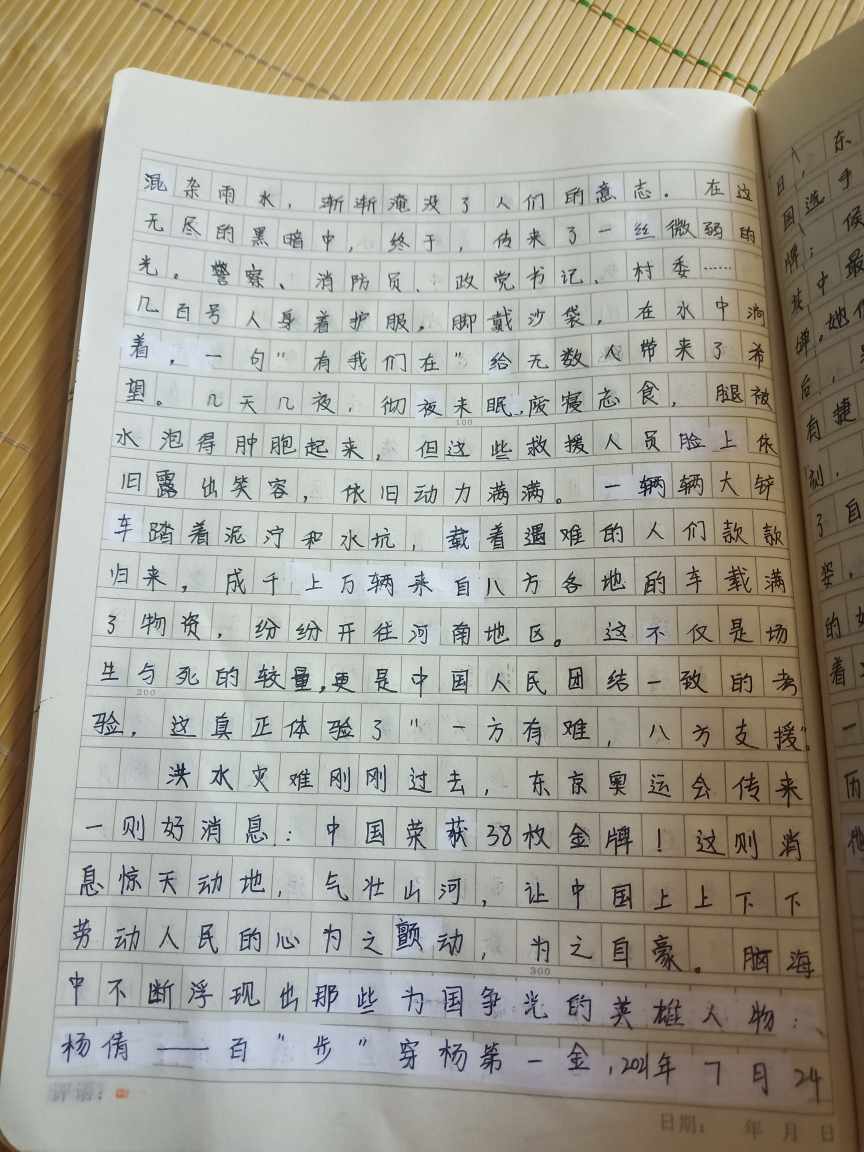 混杂雨水，渐渐淹没了人们的意志。在这
无尽的黑暗中，终于，传来了一丝微弱的
光。警察、消防员、政党书记、村委……
几百号人身着护服，脚戴沙袋，在水中淌
着，一句"有我们在"给无数人带来了希
望。几天几夜，彻夜未眠，废寝忘食，腿被
100
水泡得肿胞起来，但这些救援人员脸上依
旧露出笑容，依旧动力满满。一辆辆大铲
车踏着泥泞和水坑，载着遇难的人们款款
归来，成千上万辆来自八方各地的车载满
了物资，纷纷开往河南地区。这不仅是场
生与死的较量，更是中国人民团结一致的考
200
验，这真正体验了"一方有难，八方支援"。
洪水灾难刚刚过去，东京奥运会传来
一则好消息：中国荣获38枚金牌！这则消
息惊天动地，气壮山河，让中国上上下下
劳动人民的心为之颤动，为之自豪。脑海
300
中不断浮现出那些为国争光的英雄人物：
杨倩——百"步"穿杨第一金，2021年7月24
评语：
日期： 年 月 日
日，东
国选手
牌；候
族中最
牌。她们
后，
有捷
刻，
了自
姿，
的好
着
一
历
他